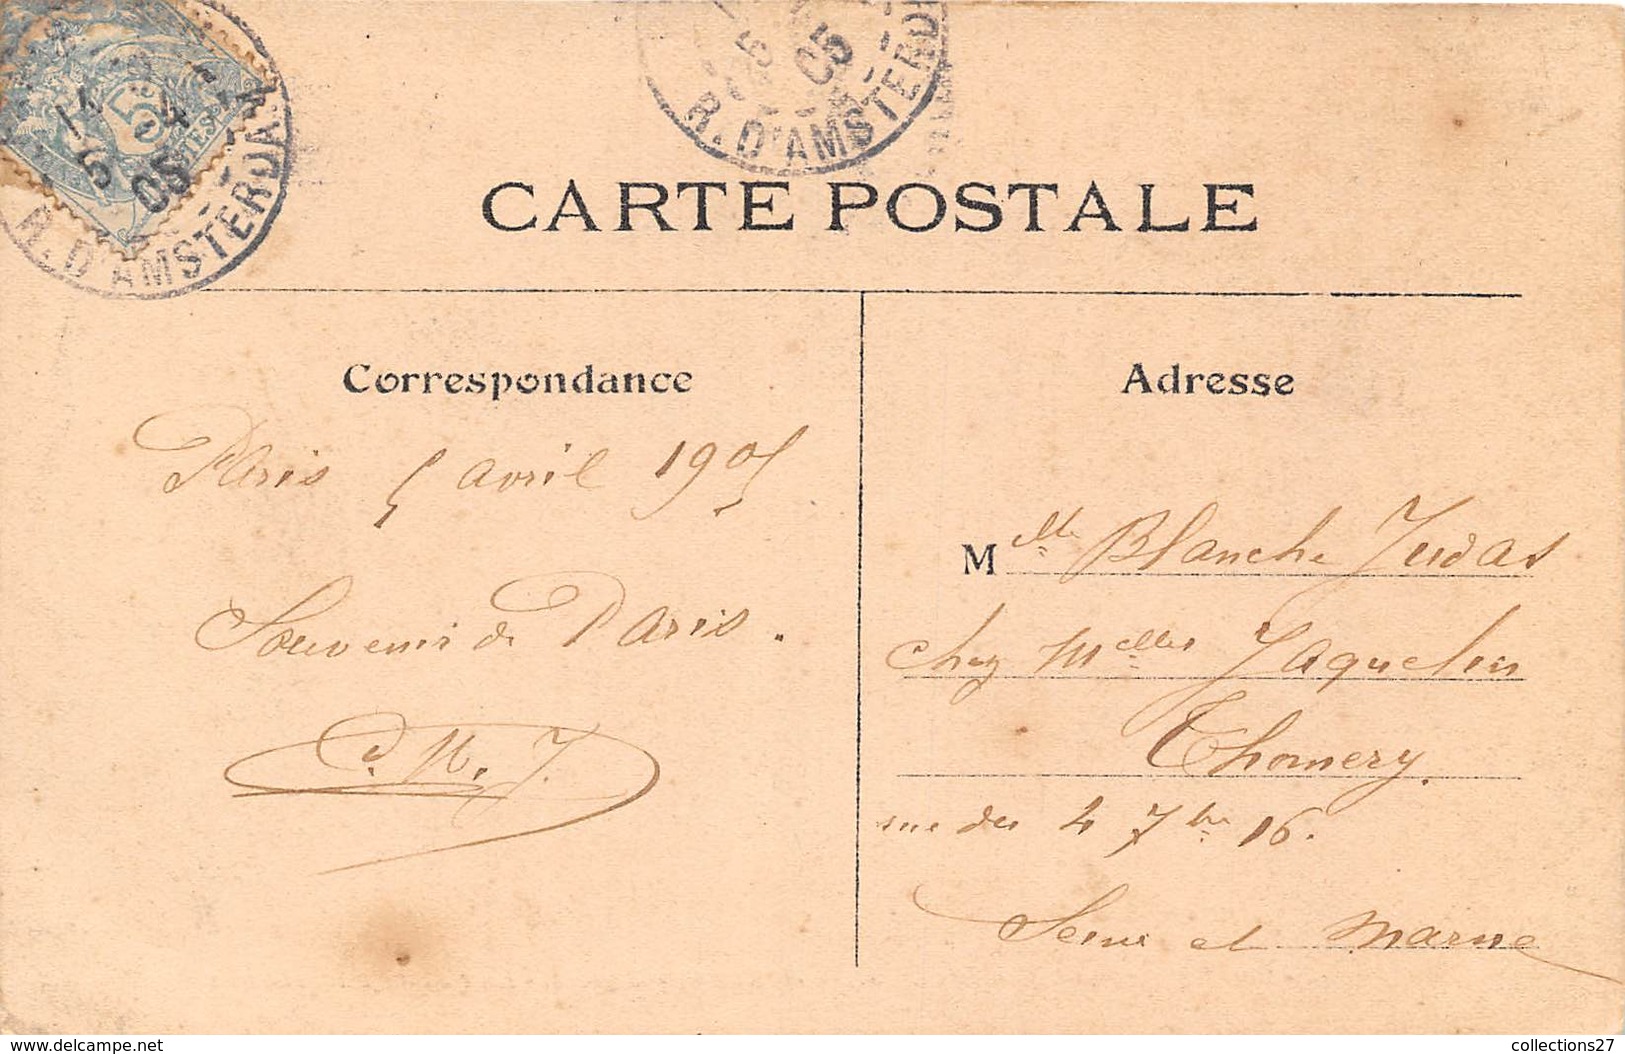 5
R. D'AMSTERDAM
05
R. D'AMSTERDAM
05
CARTE POSTALE
Correspondance
Paris 5 avril 1905
Souvenir de Paris.
C. M. J.
Adresse
Melle Blanche Judas
chez Melles Jaquelin
Thomery.
rue des 4 7bre 16.
Seine et Marne
www.delcampe.net
collections27